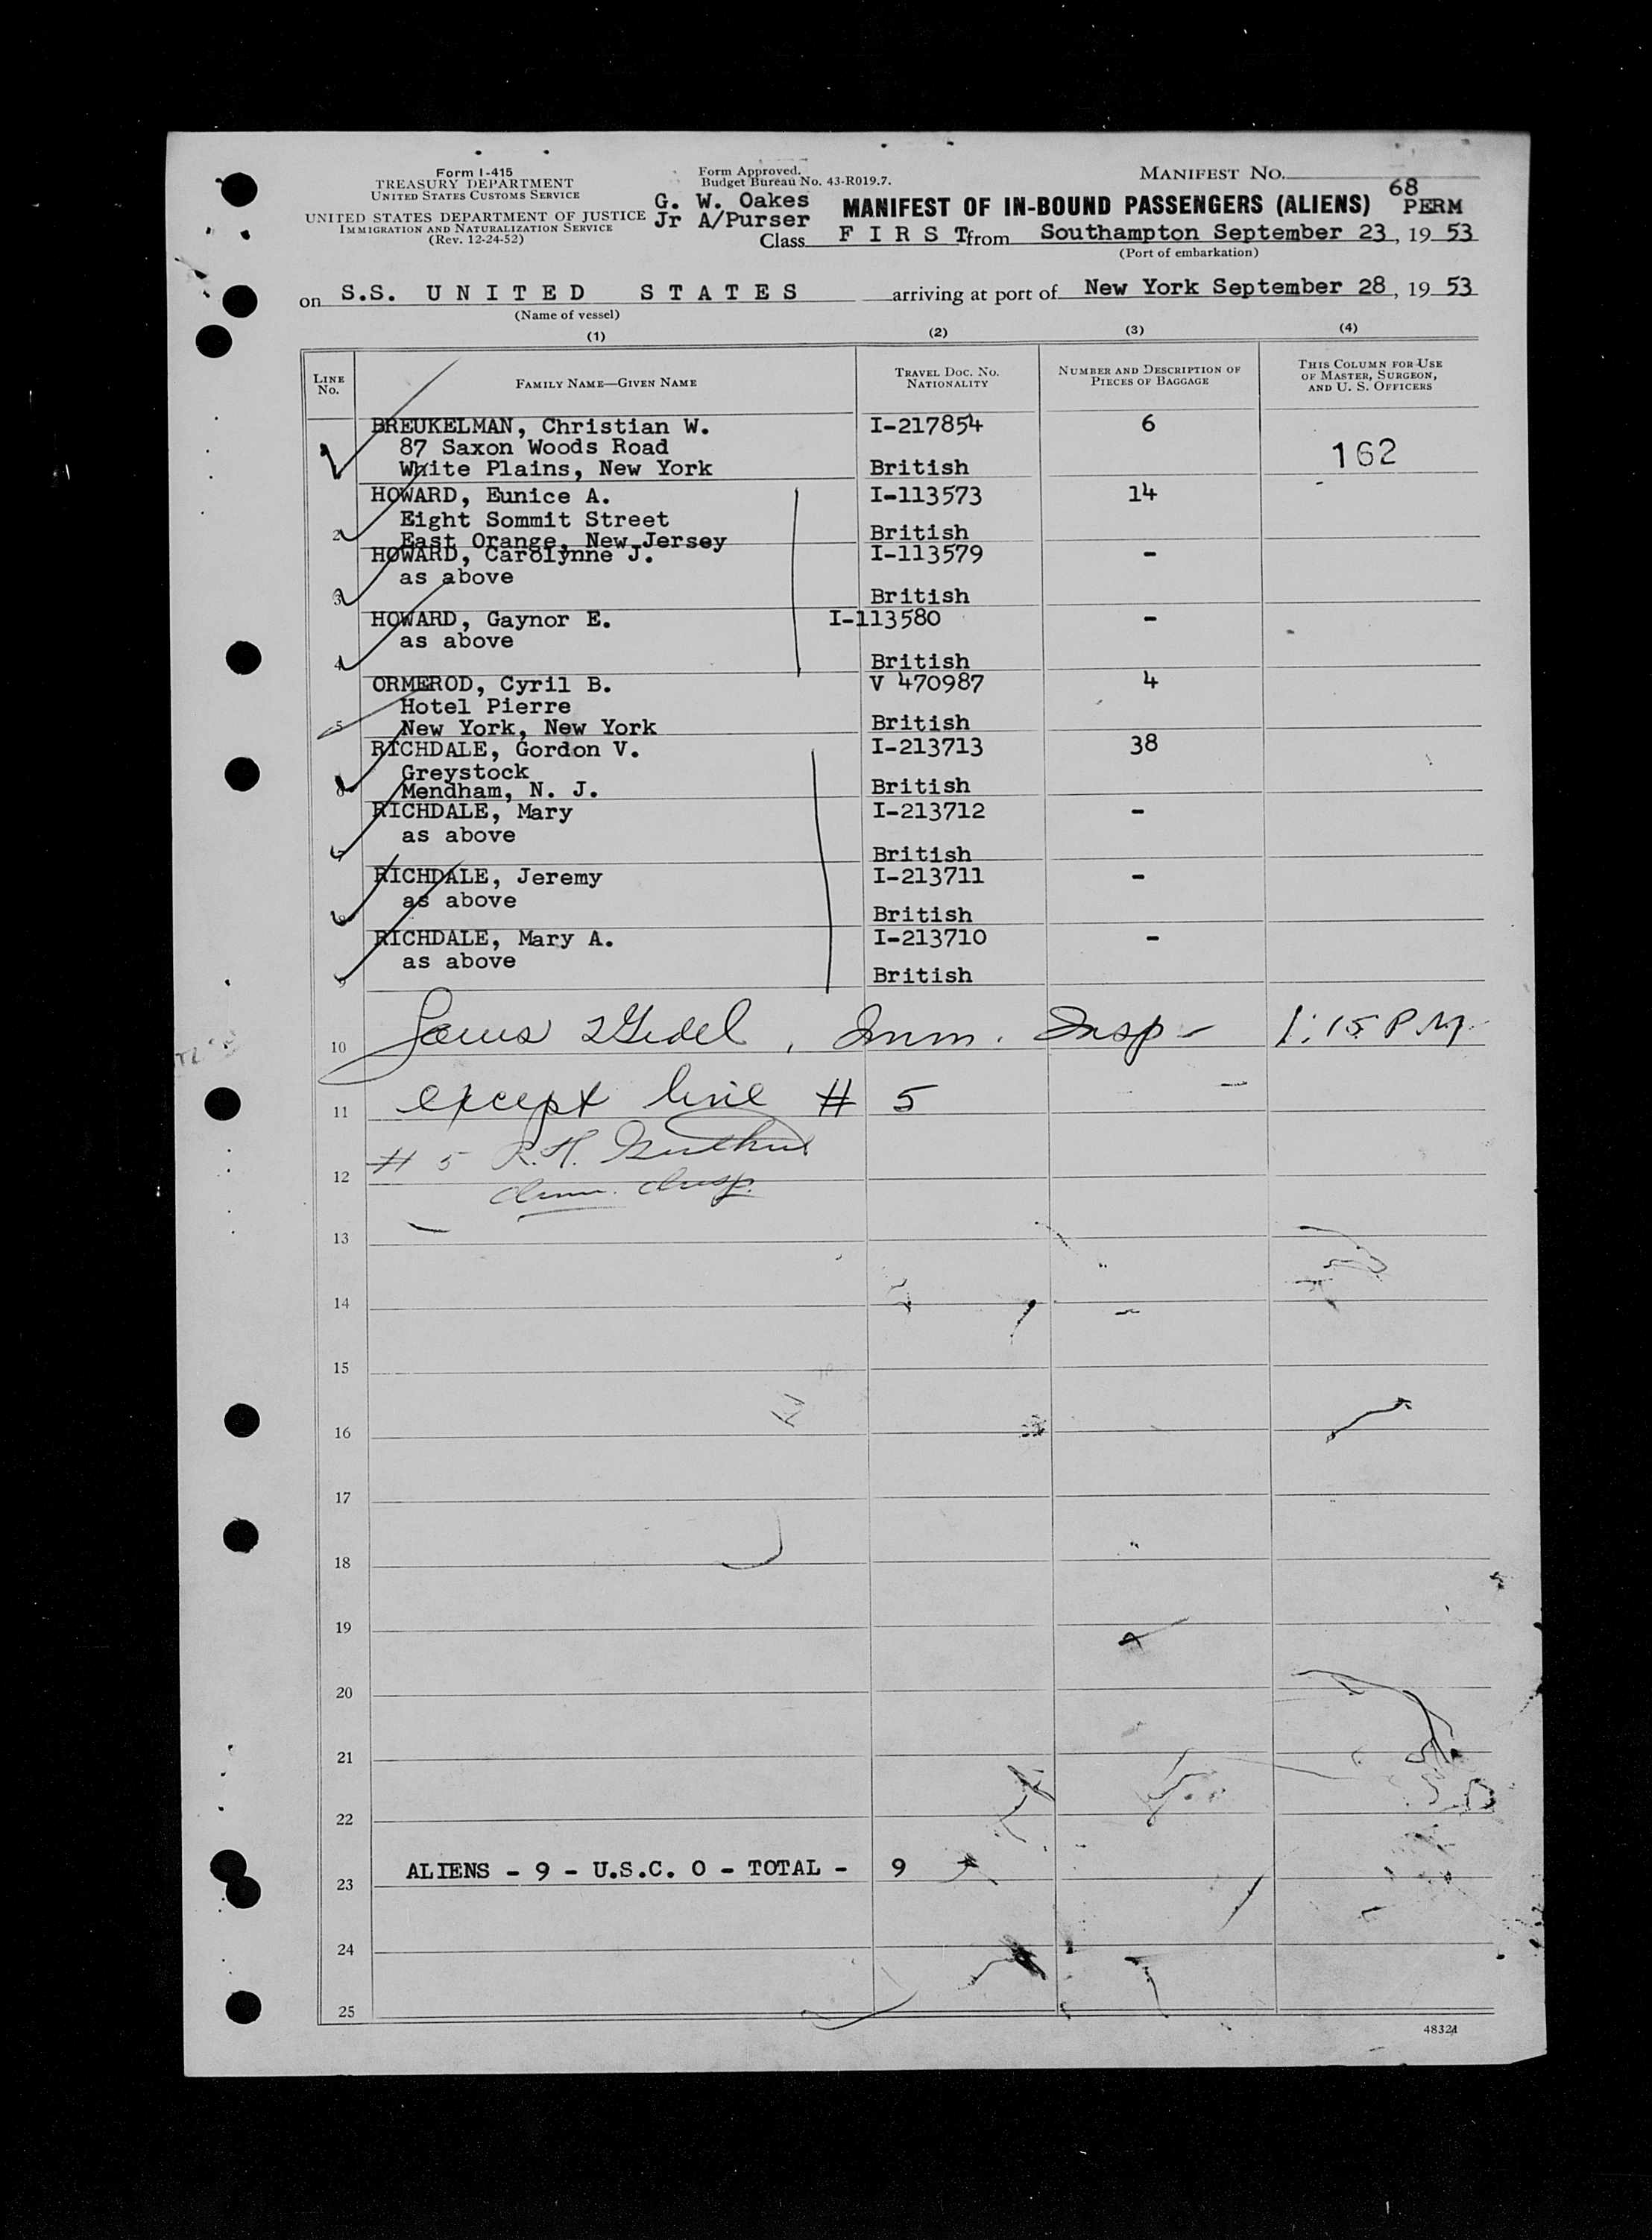 Form I-415
TREASURY DEPARTMENT
UNITED STATES CUSTOMS SERVICE
UNITED STATES DEPARTMENT OF JUSTICE
IMMIGRATION AND NATURALIZATION SERVICE
(Rev. 12-24-52)
Form Approved.
Budget Bureau No. 43-R019.7.
G. W. Oakes
Jr A/Purser
MANIFEST NO.
68
PERM
MANIFEST OF IN-BOUND PASSENGERS (ALIENS)
Class F I R S T from Southampton September 23, 19 53
(Port of embarkation)
on S.S. U N I T E D S T A T E S arriving at port of New York September 28, 19 53
(Name of vessel)
(1) (2) (3) (4)
LINE No. FAMILY NAME—GIVEN NAME TRAVEL DOC. NO. NATIONALITY NUMBER AND DESCRIPTION OF PIECES OF BAGGAGE THIS COLUMN FOR USE OF MASTER, SURGEON, AND U. S. OFFICERS
BREUKELMAN, Christian W. I-217854 6
87 Saxon Woods Road 162
White Plains, New York British
HOWARD, Eunice A. I-113573 14
Eight Sommit Street
2 East Orange, New Jersey British
HOWARD, Carolynne J. I-113579 -
as above
3 British
HOWARD, Gaynor E. I-113580 -
as above
4 British
ORMEROD, Cyril B. V 470987 4
Hotel Pierre
5 New York, New York British
RICHDALE, Gordon V. I-213713 38
Greystock
6 Mendham, N. J. British
RICHDALE, Mary I-213712 -
as above
7 British
RICHDALE, Jeremy I-213711 -
as above
8 British
RICHDALE, Mary A. I-213710 -
as above
9 British
10 Imm. Insp - 1:15 PM
11 except line # 5
12 # 5 R.H.
Imm. Insp.
13
14
15
16
17
18
19
20
21
22
23 ALIENS - 9 - U.S.C. 0 - TOTAL - 9
24
25
48321